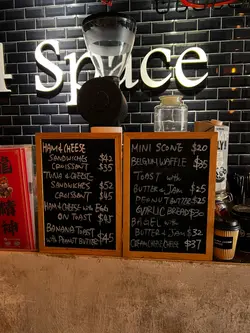 Space
HAM & CHEESE
SANDWICHES $42
CROISSANT $35
TUNA & CHEESE
SANDWICHES $52
CROISSANT $45
HAM & CHEESE WITH EGGS
ON TOAST $45
BANANA TOAST
WITH PEANUT BUTTER $45
MINI SCONE $20
BELGIUM WAFFLE
TOAST WITH
BUTTER & JAM $25
PEANUT BUTTER $25
GARLIC BREAD $30
BAGEL WITH
BUTTER & JAM $32
CREAM CHEESE $37